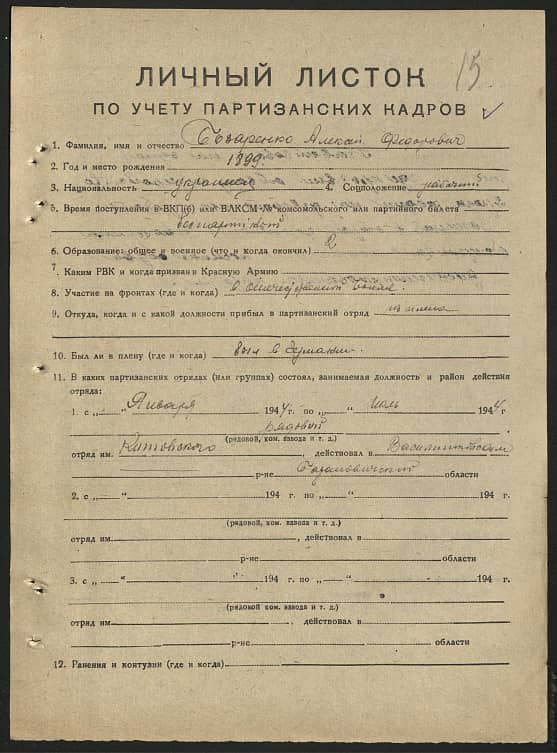 15
ЛИЧНЫЙ ЛИСТОК
ПО УЧЕТУ ПАРТИЗАНСКИХ КАДРОВ
1. Фамилия, имя и отчество Алексей Федорович
2. Год и место рождения 1899
3. Национальность украинец 4. Соцположение рабочий
5. Время поступления в ВКП(б) или ВЛКСМ-№ комсомольского или партийного билета
беспартийный
6. Образование: общее и военное (что и когда окончил) 2
7. Каким РВК и когда призван в Красную Армию
8. Участие на фронтах (где и когда) в отечественной войне
9. Откуда, когда и с какой должности прибыл в партизанский отряд из плена
10. Был ли в плену (где и когда) был в Германии
11. В каких партизанских отрядах (или группах) состоял, занимаемая должность и район действия
отряда:
1. с „ “ Января 1944 г. по „ “ Июль 1944 г
рядовой
(рядовой, ком. взвода и т. д.)
отряд им. Котовского, действовал в
р-не области
2. с „ “ 194 г. по „ “ 194 г.
(рядовой, ком. взвода и т. д.)
отряд им. , действовал в
р-не области
3. с „ “ 194 г. по „ “ 194 г.
(рядовой ком. взвода и т. д.)
отряд им. , действовал в
р-не области
12. Ранения и контузии (где и когда)